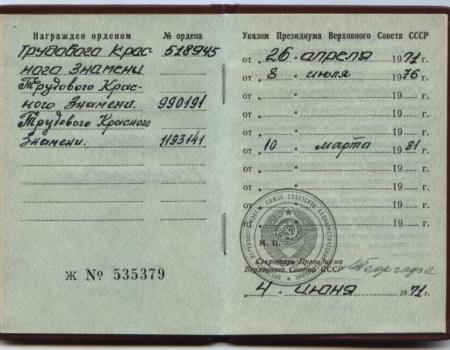 Награжден орденом № ордена
Трудового Крас- 518945
ного Знамени
Трудового Крас-
ного Знамени. 990191
Трудового Красного
Знамени. 1193141
Ж № 535379
Указом Президиума Верховного Совета СССР
от „ 26 “ апреля 1971 г.
от „ 8 “ июля 1976 г.
от „ “ 19 г.
от „ “ 19 г.
от „ “ 19 г.
от „ 10 “ марта 1981 г.
от „ “ 19 г.
от „ “ 19 г.
от „ “ 19 г.
от „ “ 19 г.
М. П.
Секретарь Президиума
Верховного Совета СССР
„ 4 “ июня 1971 г.